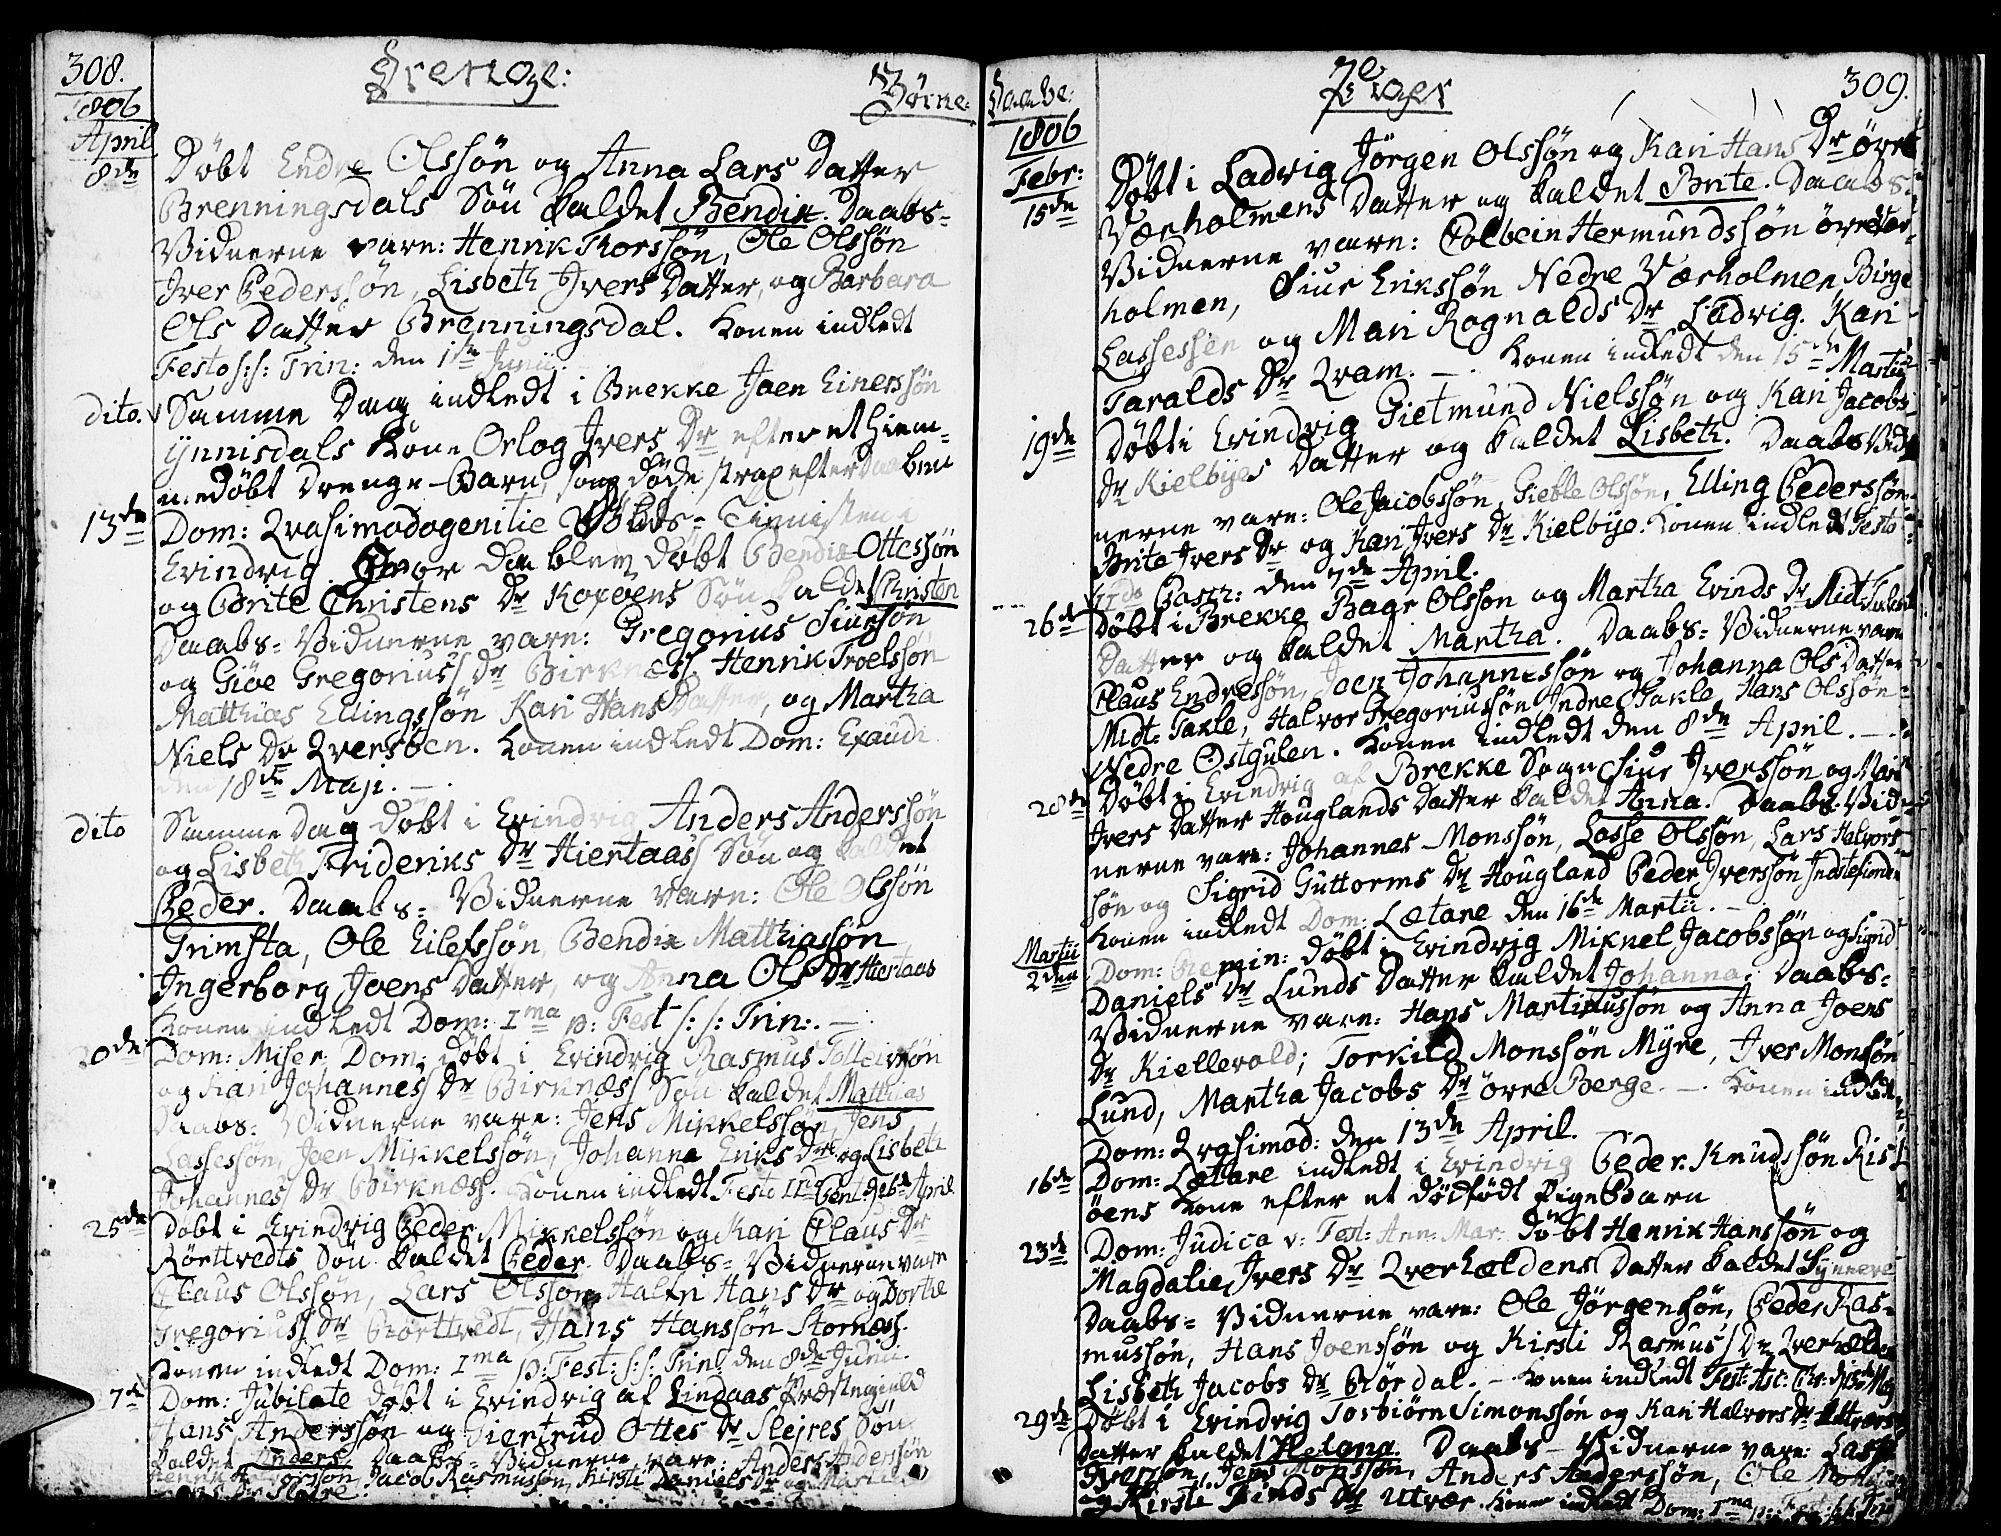 308.
Drenge:
Børne:
1806
April
8de
Døbt Endre Olssøn og Anna Lars Datter
Brenningsdals Søn kaldet Bendix. Daabs-
Vidnerne vare: Henrik Thorssøn, Ole Olssøn
Iver Pederssøn, Lisbeth Ivers Datter, og Barbara
Ols Datter Brenningsdal. Konen indledt
Festo s:s: Trin: den 1ste Junii.
dito. Samme Dag indledt i Brekke Joen Einerssøn
Ynnisdals Kone Orlog Ivers Dr efter et hiem-
medøbt Drenge-Barn, som døde strax efter Daaben
13de Dom: Qvasimodogeniti
Evindvig. Hvor da blev døbt Bendix Ottessøn
og Brite Christens Dr Koxøens Søn kaldet Christen
Daabs-Vidnerne vare: Gregorius Siurssøn
og Giøe Gregorius Dr Birknes, Henrik Troelssøn
Matthias Ellingssøn Kari Hans Datter, og Martha
Niels Dr Qversøen. Konen indledt Dom: Exaudi
den 18de Maji.
dito Samme Dag døbt i Evindvig Anders Anderssøn
og Lisbeth Frideriks Dr Hiertaas Søn og kaldet
Peder. Daabs-Vidnerne vare: Ole Olssøn
Grimsta, Ole Eilefssøn, Bendix Matthiassøn
Ingerborg Joens Datter, og Anna Ols Dr Hiertaas
Konen indledt Dom: 1ma p: Fest s: s: Trin:.
20de Dom: Miser: Dom: døbt i Evindvig Rasmus Tolleivssøn
og Kari Johannes Dr Birknæs Søn kaldet Matthias
Daabs-Vidnerne vare: Jens Mikkelssøn, Jens
Lassessøn, Joen Mikkelssøn, Johanna Eriks Dr og Lisbeth
Johannes Dr Birknæs. Konen indledt Festo IIdo Pent:
25de Døbt i Evindvig Peder Mikkelssøn og Kari Claus Dr
Rørttvedts Søn kaldet Peder. Daabs-Vidnerne vare
Claus Olssøn, Lars Olssøn, Hans Dr og Dorthe
Gregorius Dr Rørttvedt, Hans Hanssøn Stornæs.
Konen indledt Dom: 1ma p: Fest: s: s: Trin: den 8de Junii.
7de Dom: Jubilate døbt i Evindvig af Lindaas Præstegield
Hans Anderssøn og Giertrud Ottes Dr Slejres Søn
kaldet Anders. Daabs-Vidnerne vare: Anders Anderssøn
Jacob Rasmussøn, Kirsti Daniels Dr
Daabe:
Piger
309.
1806
Febr:
15de
Døbt i Ladvig Jørgen Olssøn og Kari Hans Dr øvre
Værholmens Datter og kaldet Brite. Daabs-
Vidnerne vare: Colbein Hermundssøn øvre Vær-
holmen, Siur Erikssøn Nedre Værholmen Birge
Lassessøn og Mari Rognalds Dr Ladvig. Kari
Taralds Dr Qvam. Konen indledt den 15de Martii
19de Døbt i Evindvig Gietmund Nielssøn og Kari Jacobs
Dr Kielbyes Datter og kaldet Lisbeth. Daabs Vid-
nerne vare: Ole Jacobssøn, Gietle Olssøn, Elling Pederssøn
Brite Ivers Dr og Kari Ivers Dr Kielbye. Konen indledt Festo
IIdo Pasch: den 7de April.
26de Døbt i Brekke Bagr Olsson og Martha Evinds Dr Midt Takle
Datter og kaldet Martha. Daabs-Vidnerne vare
Claus Endressøn, Joen Johannessøn og Johanna Ols Datter
Midt-Takle, Halvor Gregoriussøn Indre Takle Hans Olssøn
Nedre Østgulen. Konen indledt den 8de April.
28de Døbt i Evindvig af Brekke Sogn Siur Iverssøn og Mari
Ivers Datter Houglands Datter kaldet Anna. Daabs-Vid-
nerne vare: Johannes Monssøn, Lasse Olssøn, Lars Halvors-
søn og Sigrid Guttorms Dr Hougland Peder Iverssøn Indrefiorden
Konen indledt Dom: Lætare den 16de Martii.
Martii
2den Dom: Remin: døbt i Evindvig Mikkel Jacobssøn og Sigrid
Daniels Dr Lunds Datter kaldet Johanna. Daabs-
Vidnerne vare: Hans Martinussøn og Anna Joens
Dr Kiellevold; Torkild Monssøn Myre, Iver Monssøn
Lund, Martha Jacobs Dr øvre Berge. Konen indledt
Dom: Qvasimod: den 13de April.
16de Dom: Lætare indledt i Evindvig Peder Knudssøn Ris-
øens Kone efter et dødfødt Pige Barn
23de Dom: Judica v: Fest: Ann: Mar: døbt Henrik Hanssøn og
Magdalie Ivers Dr Qverhældens Datter kaldet Synneve
Daabs-Vidnerne vare: Ole Jørgenssøn, Peder Ras-
mussøn, Hans Joenssøn og Kirsti Rasmus Dr Qverhælden
Lisbeth Jacobs Dr Rørdal. Konen indledt Fest: Asc: Chr:
29de Døbt i Evindvig Torbiørn Simonssøn og Kari Halvors Dr
Datter kaldet Helena. Daabs-Vidnerne vare: Lasse
Iverssøn, Jens Monssøn, Anders Anderssøn, Ole
og Kirsti Dr Utvær. Konen indledt Dom: 1ma p: Fest: